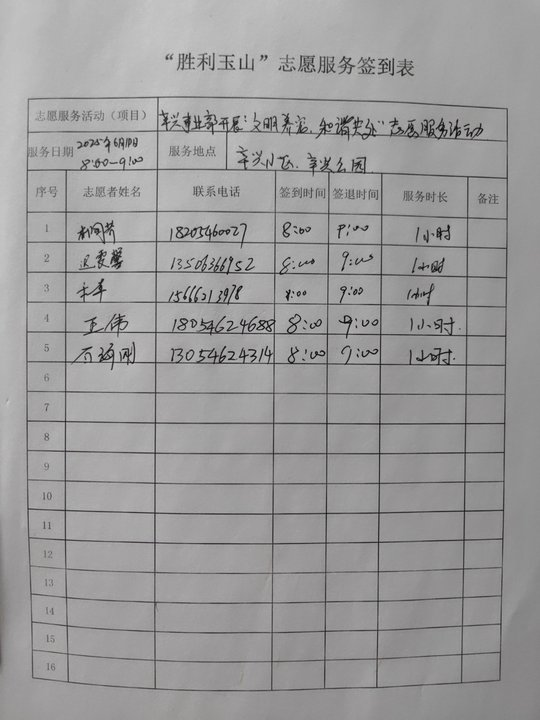 “胜利玉山”志愿服务签到表
志愿服务活动（项目） 辛兴事业部开展“文明养宠，和谐共处”志愿服务活动
服务日期 2025年6月10日 8:00-9:00 服务地点 辛兴小区、辛兴公园
序号 志愿者姓名 联系电话 签到时间 签退时间 服务时长 备注
1 18205460027 8:00 9:00 1小时
2 13506366952 8:00 9:00 1小时
3 15666213978 8:00 9:00 1小时
4 王伟 18054624688 8:00 9:00 1小时.
5 13054624314 8:00 9:00 1小时.
6
7
8
9
10
11
12
13
14
15
16